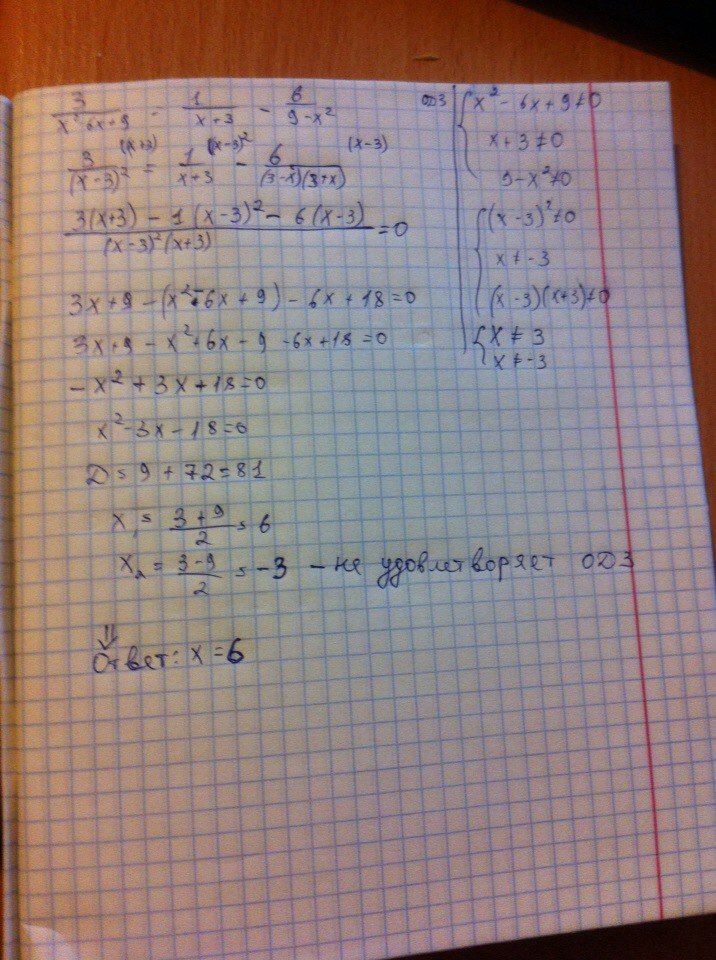 3/(x² 6x+9) = 1/(x+3) - 6/(9-x²)
3/(x-3)² (x+3) = 1/(x+3) (x-3)² - 6/((3-x)(3+x)) (x-3)
(3(x+3) - 1(x-3)² - 6(x-3))/((x-3)²(x+3)) = 0
3x+9-(x²-6x+9)-6x+18=0
3x+9-x²+6x-9-6x+18=0
-x²+3x+18=0
x²-3x-18=0
D=9+72=81
x₁=(3+9)/2=6
x₂=(3-9)/2=-3 - не удовлетворяет ОДЗ
⇓
Ответ: x=6
ОДЗ { x²-6x+9≠0
x+3≠0
9-x²≠0
{ (x-3)²≠0
x≠-3
(x-3)(x+3)≠0
{ x≠3
x≠-3